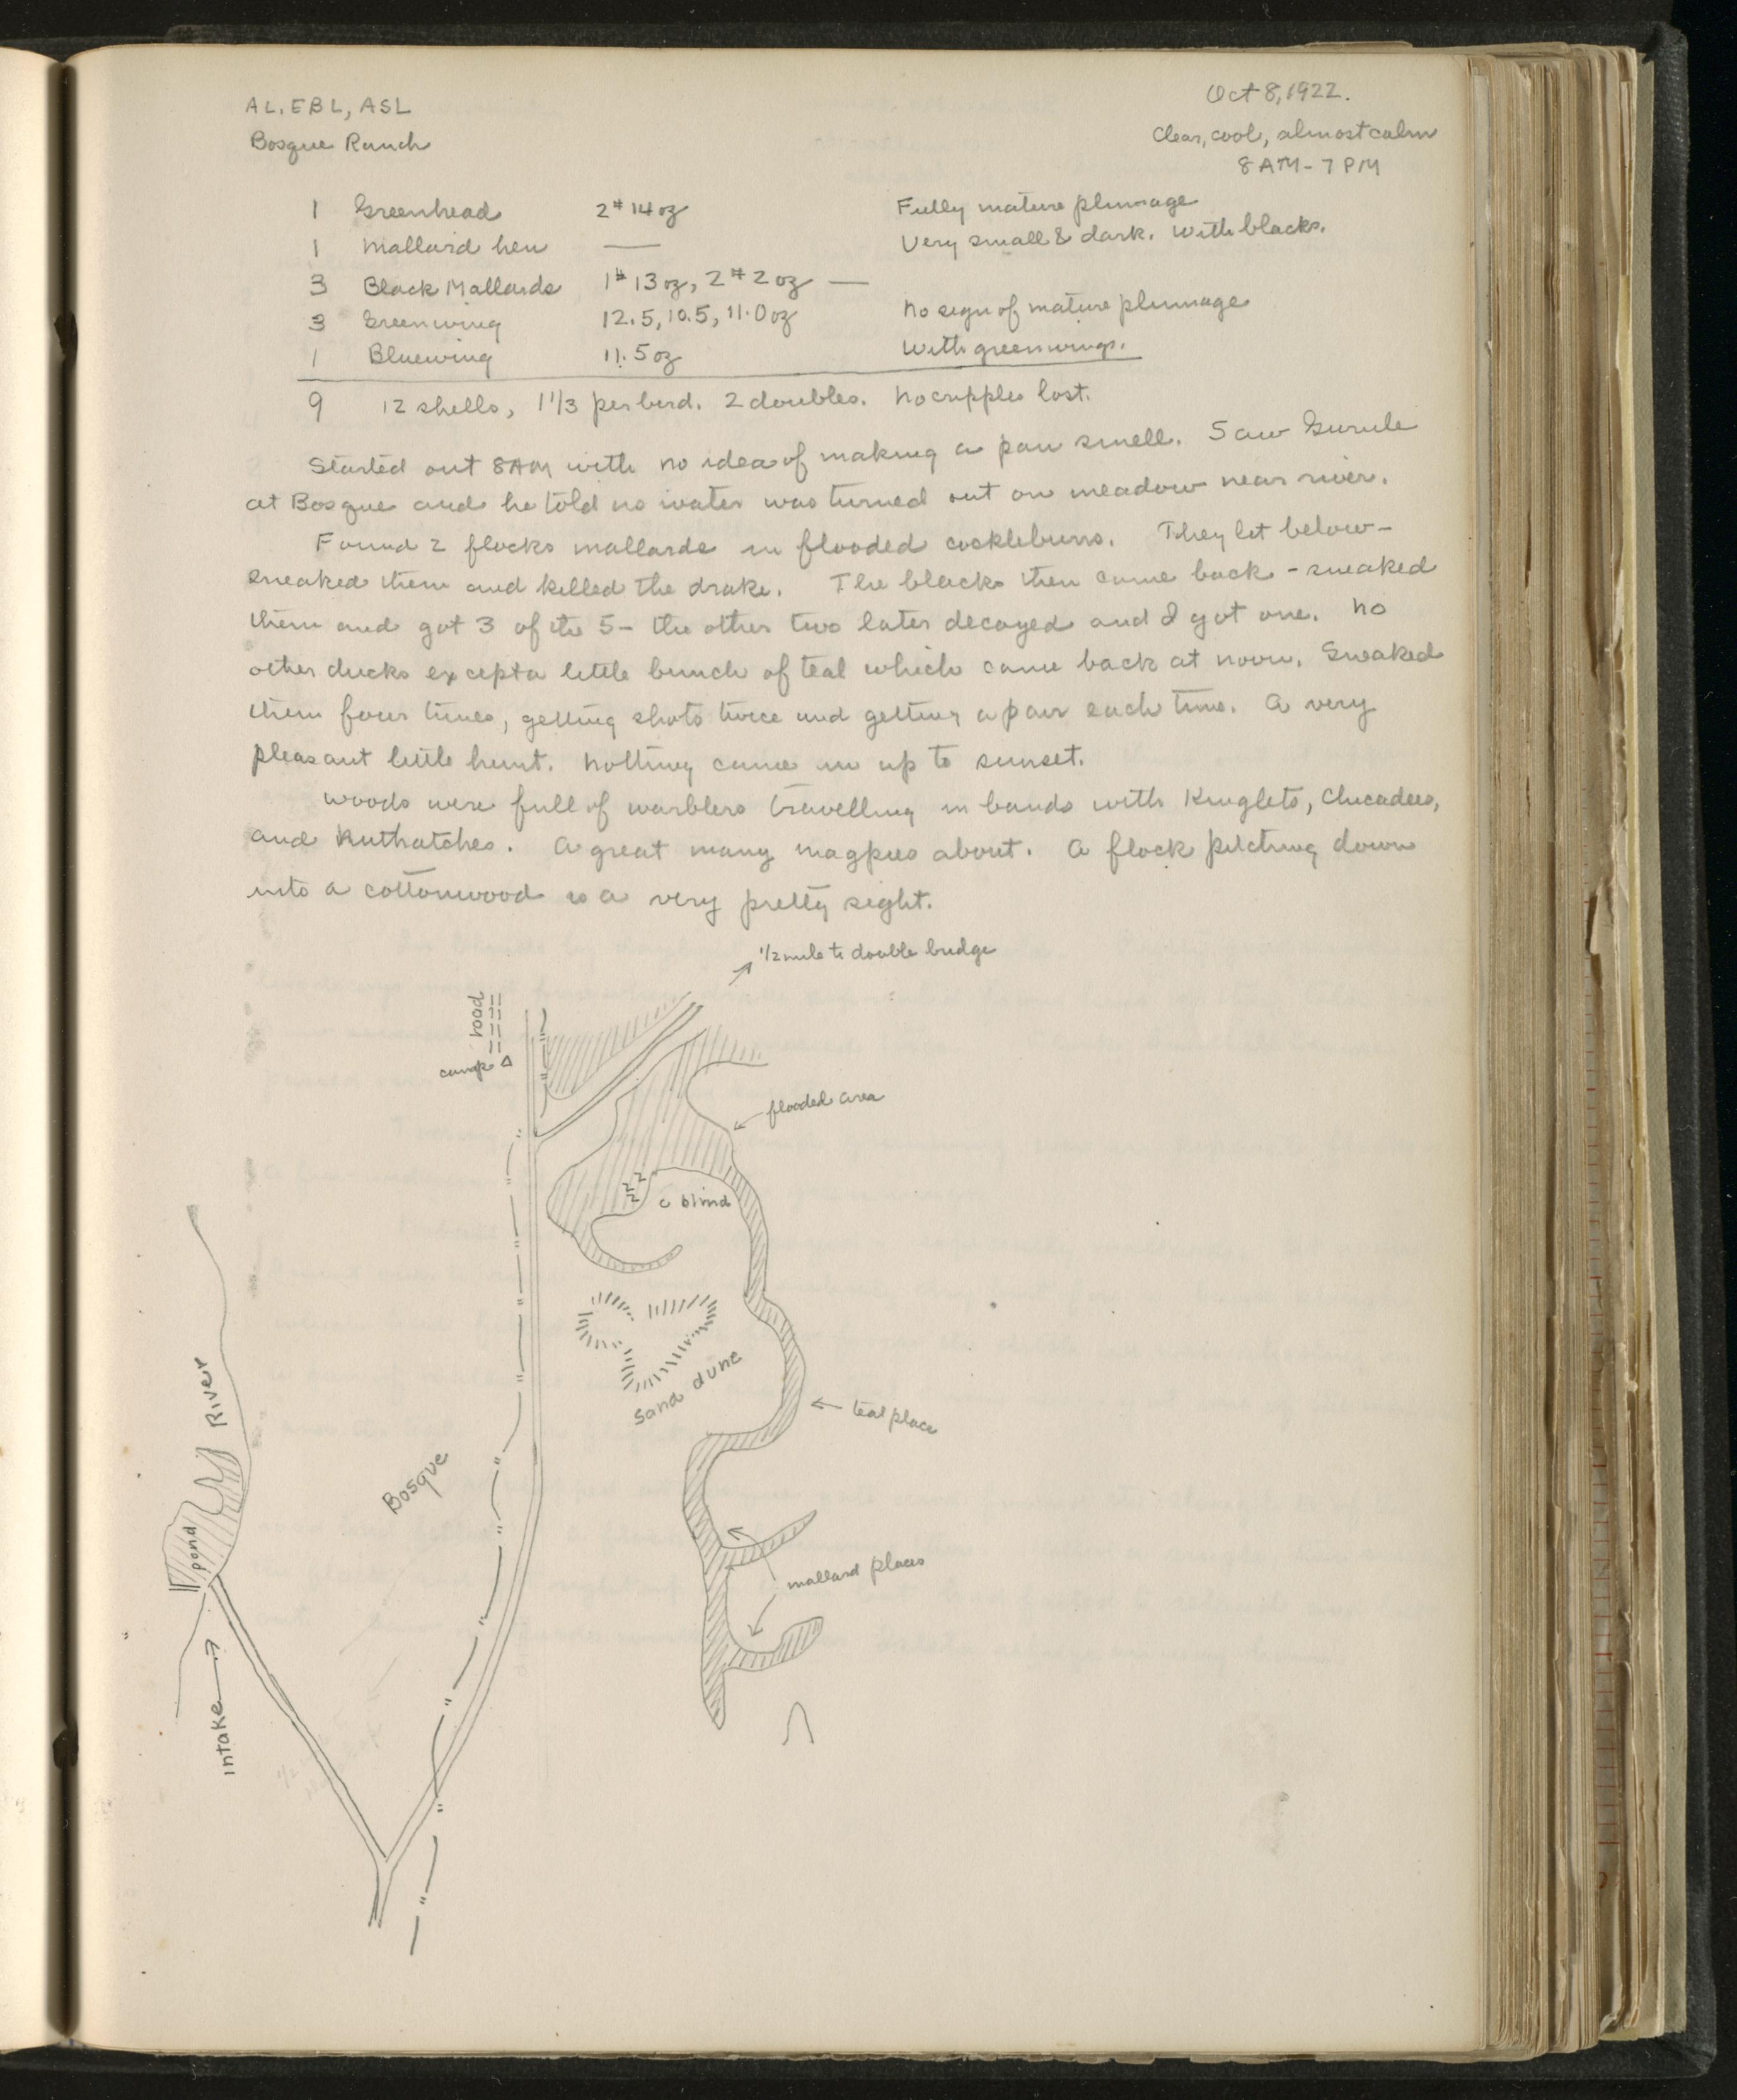 AL, EBL, ASL
Oct 8, 1922.
Bosque Ranch
Clear, cool, almost calm
8 AM - 7 PM
1 Greenhead 2# 14 oz Fully mature plumage
1 Mallard hen — Very small & dark. With blacks.
3 Black Mallards 1# 13 oz, 2# 2 oz —
3 Greenwing 12.5, 10.5, 11.0 oz No sign of mature plumage
1 Bluewing 11.5 oz With greenwings.
9 12 shells, 1 1/3 per bird. 2 doubles. No cripples lost.
Started out 8AM with no idea of making a pan smell. Saw Gurule
at Bosque and he told us water was turned out on meadow near river.
Found 2 flocks mallards in flooded cockleburrs. They lit below -
sneaked them and killed the drake. The blacks then came back - sneaked
them and got 3 of the 5 - the other two later decoyed and I got one. No
other ducks except a little bunch of teal which came back at noon. Sneaked
them four times, getting shots twice and getting a pair each time. A very
pleasant little hunt. Nothing came in up to sunset.
Woods were full of warblers travelling in bands with Kinglets, Chicadees,
and Nuthatches. A great many magpies about. A flock pitching down
into a cottonwood is a very pretty sight.
1/2 mile to double bridge
road
camp
flooded area
blind
River
Sand dune
teal place
Bosque
pond
mallard places
Intake